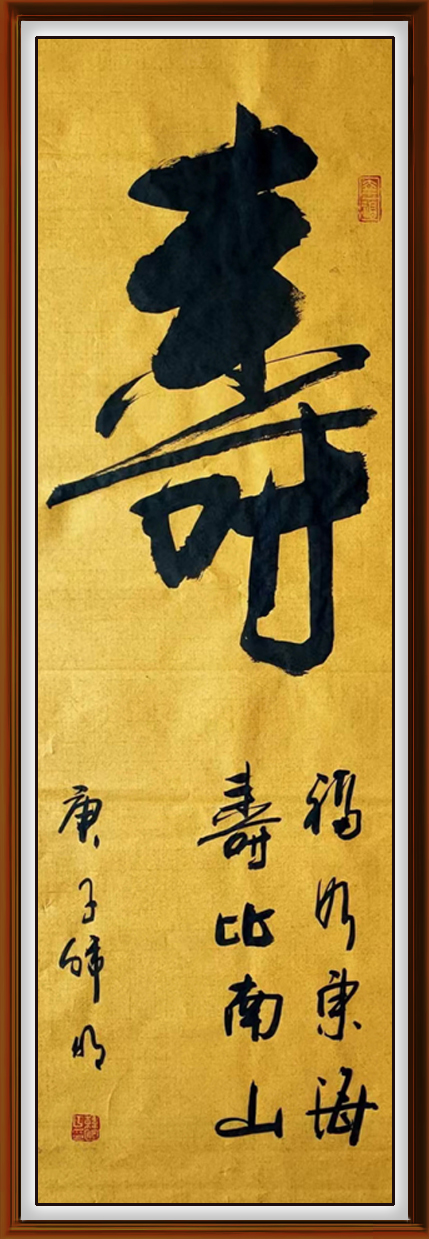 壽
福如東海
壽比南山
庚子師明